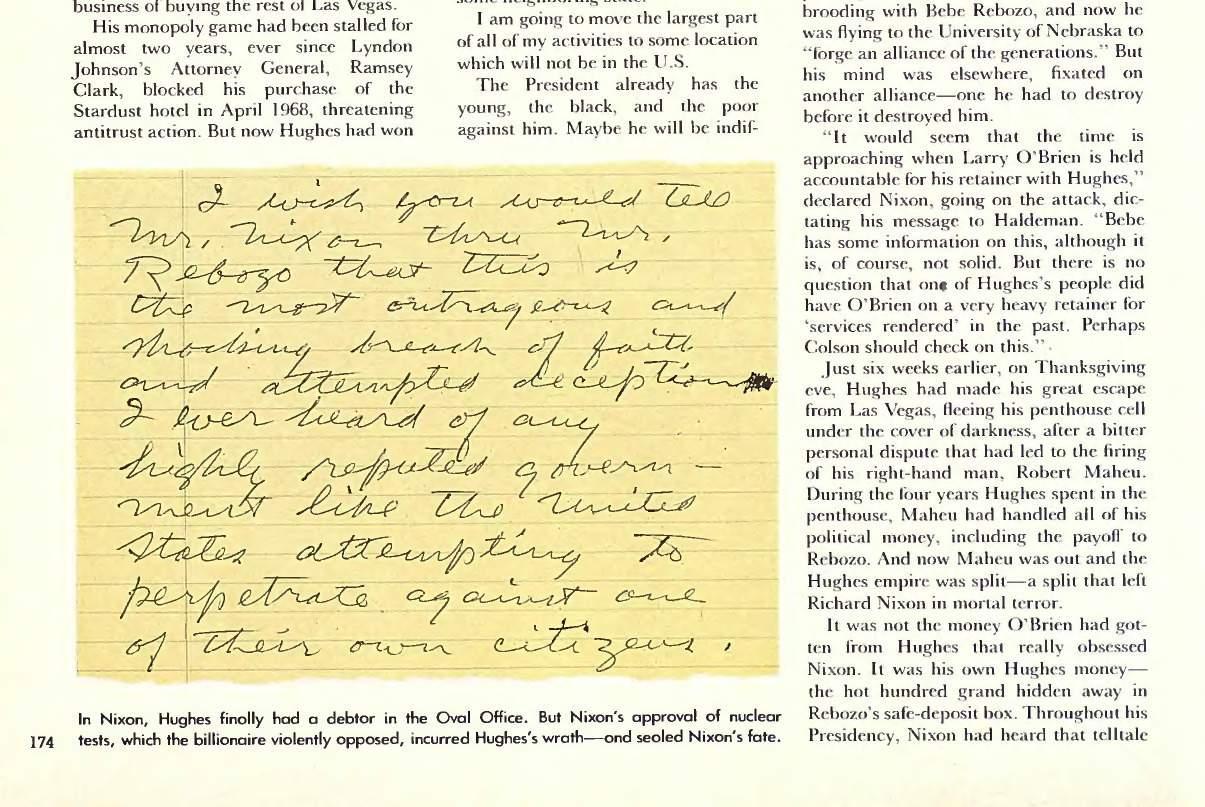 business of buying the rest of Las Vegas.
His monopoly game had been stalled for
almost two years, ever since Lyndon
Johnson's Attorney General, Ramsey
Clark, blocked his purchase of the
Stardust hotel in April 1968, threatening
antitrust action. But now Hughes had won
some neighboring state.
I am going to move the largest part
of all of my activities to some location
which will not be in the U.S.
The President already has the
young, the black, and the poor
against him. Maybe he will be indif-
I wish you would tell
Mr. Nixon thru Mr.
Rebozo that this is
the most outrageous and
shocking breach of faith
and attempted deception
I ever heard of any
highly reputed govern-
ment like the United
States attempting to
perpetrate against one
of their own citizens.
In Nixon, Hughes finolly had a debtor in the Oval Office. But Nixon's approval of nuclear
tests, which the billionaire violently opposed, incurred Hughes's wrath—ond seoled Nixon's fate.
174
brooding with Bebe Rebozo, and now he
was flying to the University of Nebraska to
"forge an alliance of the generations." But
his mind was elsewhere, fixated on
another alliance—one he had to destroy
before it destroyed him.
"It would seem that the time is
approaching when Larry O'Brien is held
accountable for his retainer with Hughes,"
declared Nixon, going on the attack, dic-
tating his message to Haldeman. "Bebe
has some information on this, although it
is, of course, not solid. But there is no
question that one of Hughes's people did
have O'Brien on a very heavy retainer for
'services rendered' in the past. Perhaps
Colson should check on this."
Just six weeks earlier, on Thanksgiving
eve, Hughes had made his great escape
from Las Vegas, fleeing his penthouse cell
under the cover of darkness, after a bitter
personal dispute that had led to the firing
of his right-hand man, Robert Maheu.
During the four years Hughes spent in the
penthouse, Maheu had handled all of his
political money, including the payoff to
Rebozo. And now Maheu was out and the
Hughes empire was split—a split that left
Richard Nixon in mortal terror.
It was not the money O'Brien had got-
ten from Hughes that really obsessed
Nixon. It was his own Hughes money—
the hot hundred grand hidden away in
Rebozo's safe-deposit box. Throughout his
Presidency, Nixon had heard that telltale